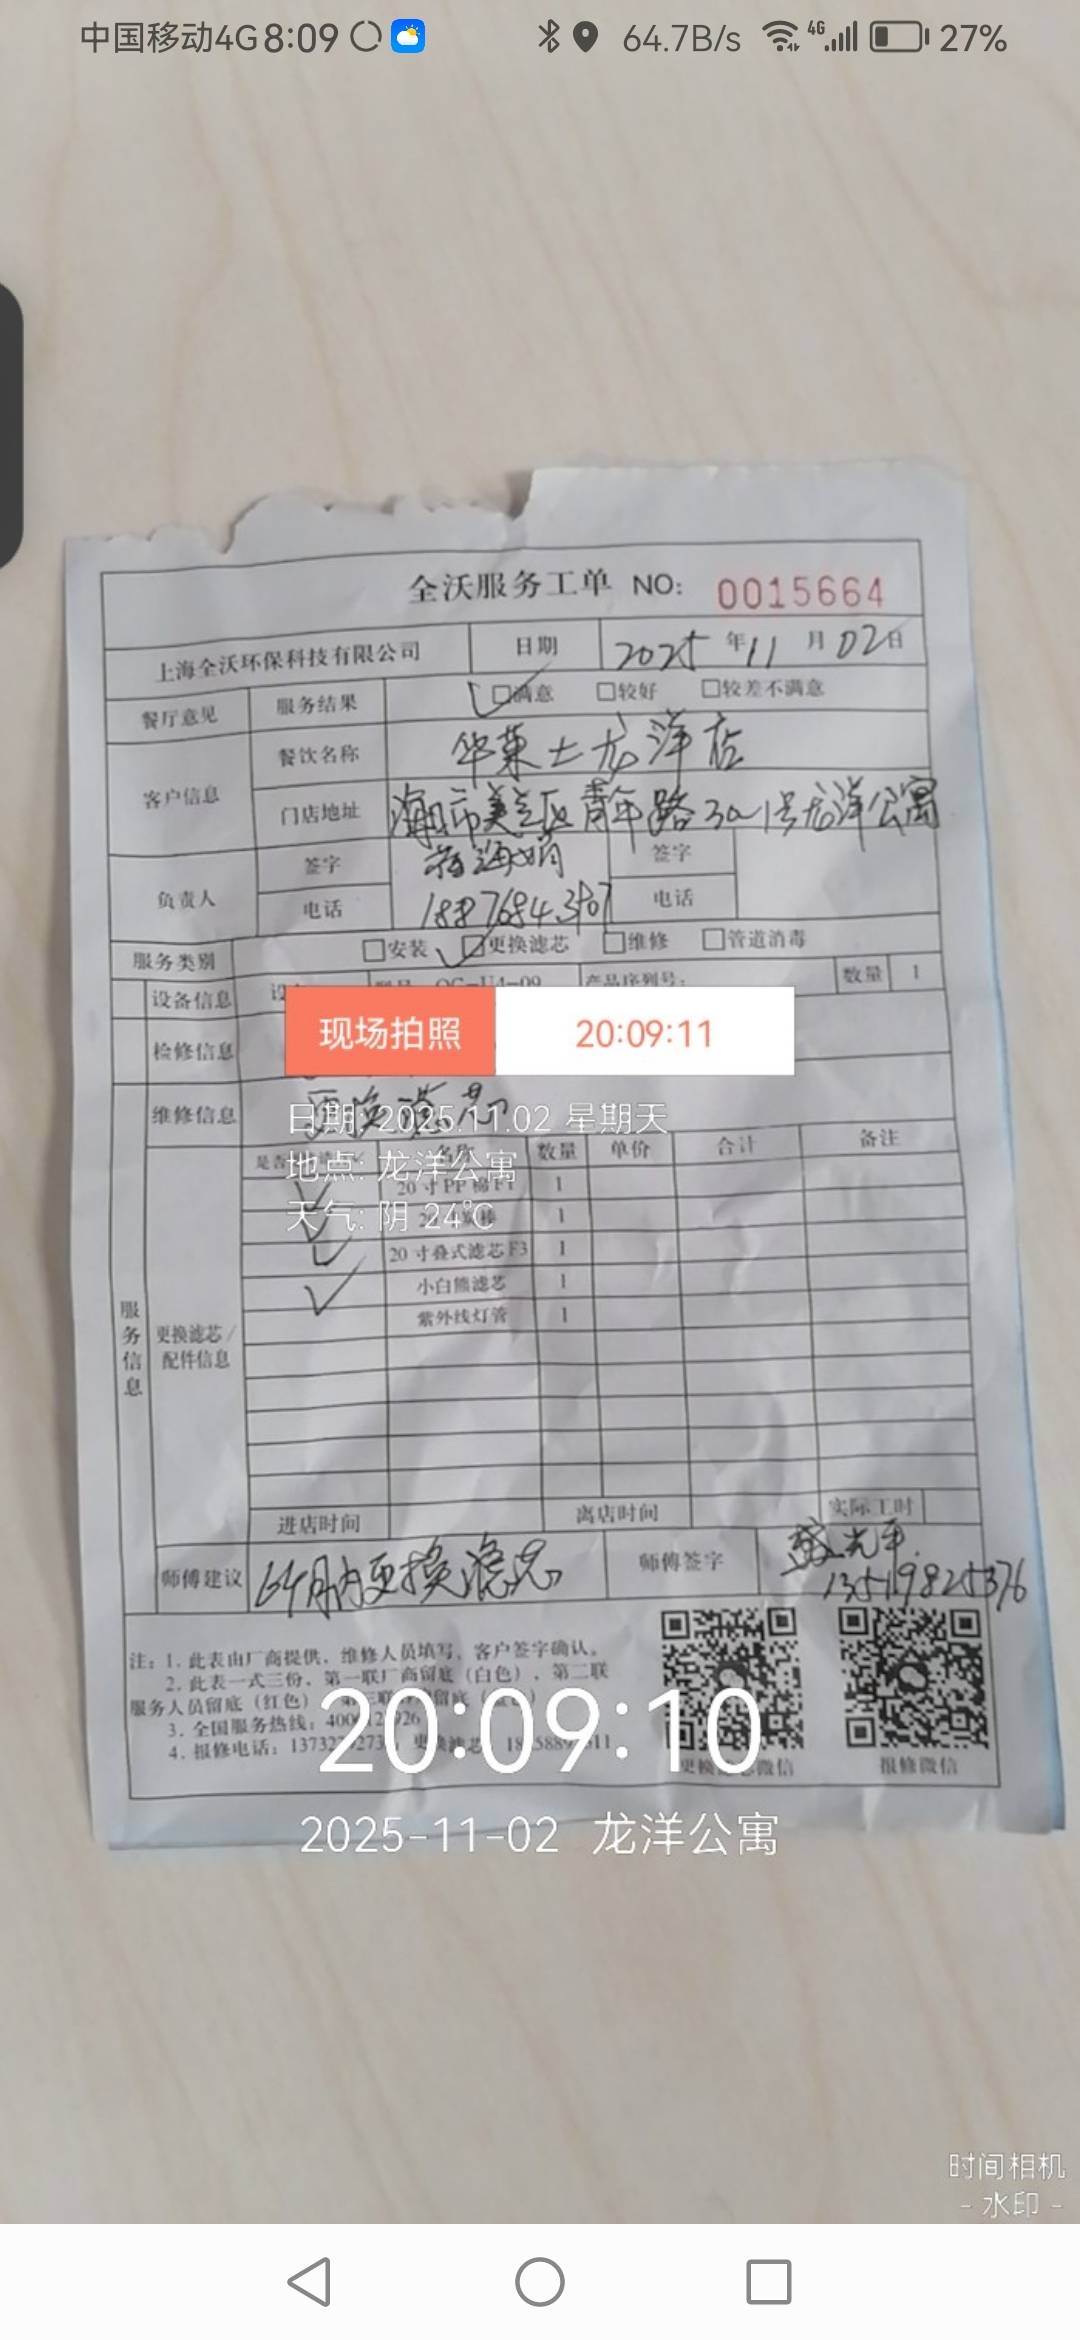 中国移动4G 8:09 64.7B/s 4G 27%
全沃服务工单 NO: 0015664
上海全沃环保科技有限公司 日期 2025 年 11 月 02 日
餐厅意见 服务结果 满意 较好 较差不满意
客户信息 餐饮名称 华莱士龙洋店
门店地址 海口市美兰区青年路 号龙洋公寓
负责人 签字 海娟 签字
电话 电话
服务类别 安装 更换滤芯 维修 管道消毒
设备信息 产品序列号: 数量 1
检修信息
现场拍照 20:09:11
维修信息 更换滤芯
日期: 2025.11.02 星期天
名称 数量 单价 合计 备注
地点: 龙洋公寓
20寸PP棉F1 1
天气: 阴 24℃
1
20寸叠式滤芯F3 1
小白熊滤芯 1
紫外线灯管 1
服务信息
更换滤芯/
配件信息
进店时间 离店时间 实际工时
师傅建议 6个月内更换滤芯 师傅签字 光平
13519825376
注: 1. 此表由厂商提供, 维修人员填写, 客户签字确认。
2. 此表一式三份, 第一联厂商留底(白色), 第二联
服务人员留底(红色)
3. 全国服务热线:
4. 报修电话:
20:09:10
微信 报修微信
2025-11-02 龙洋公寓
时间相机
- 水印 -